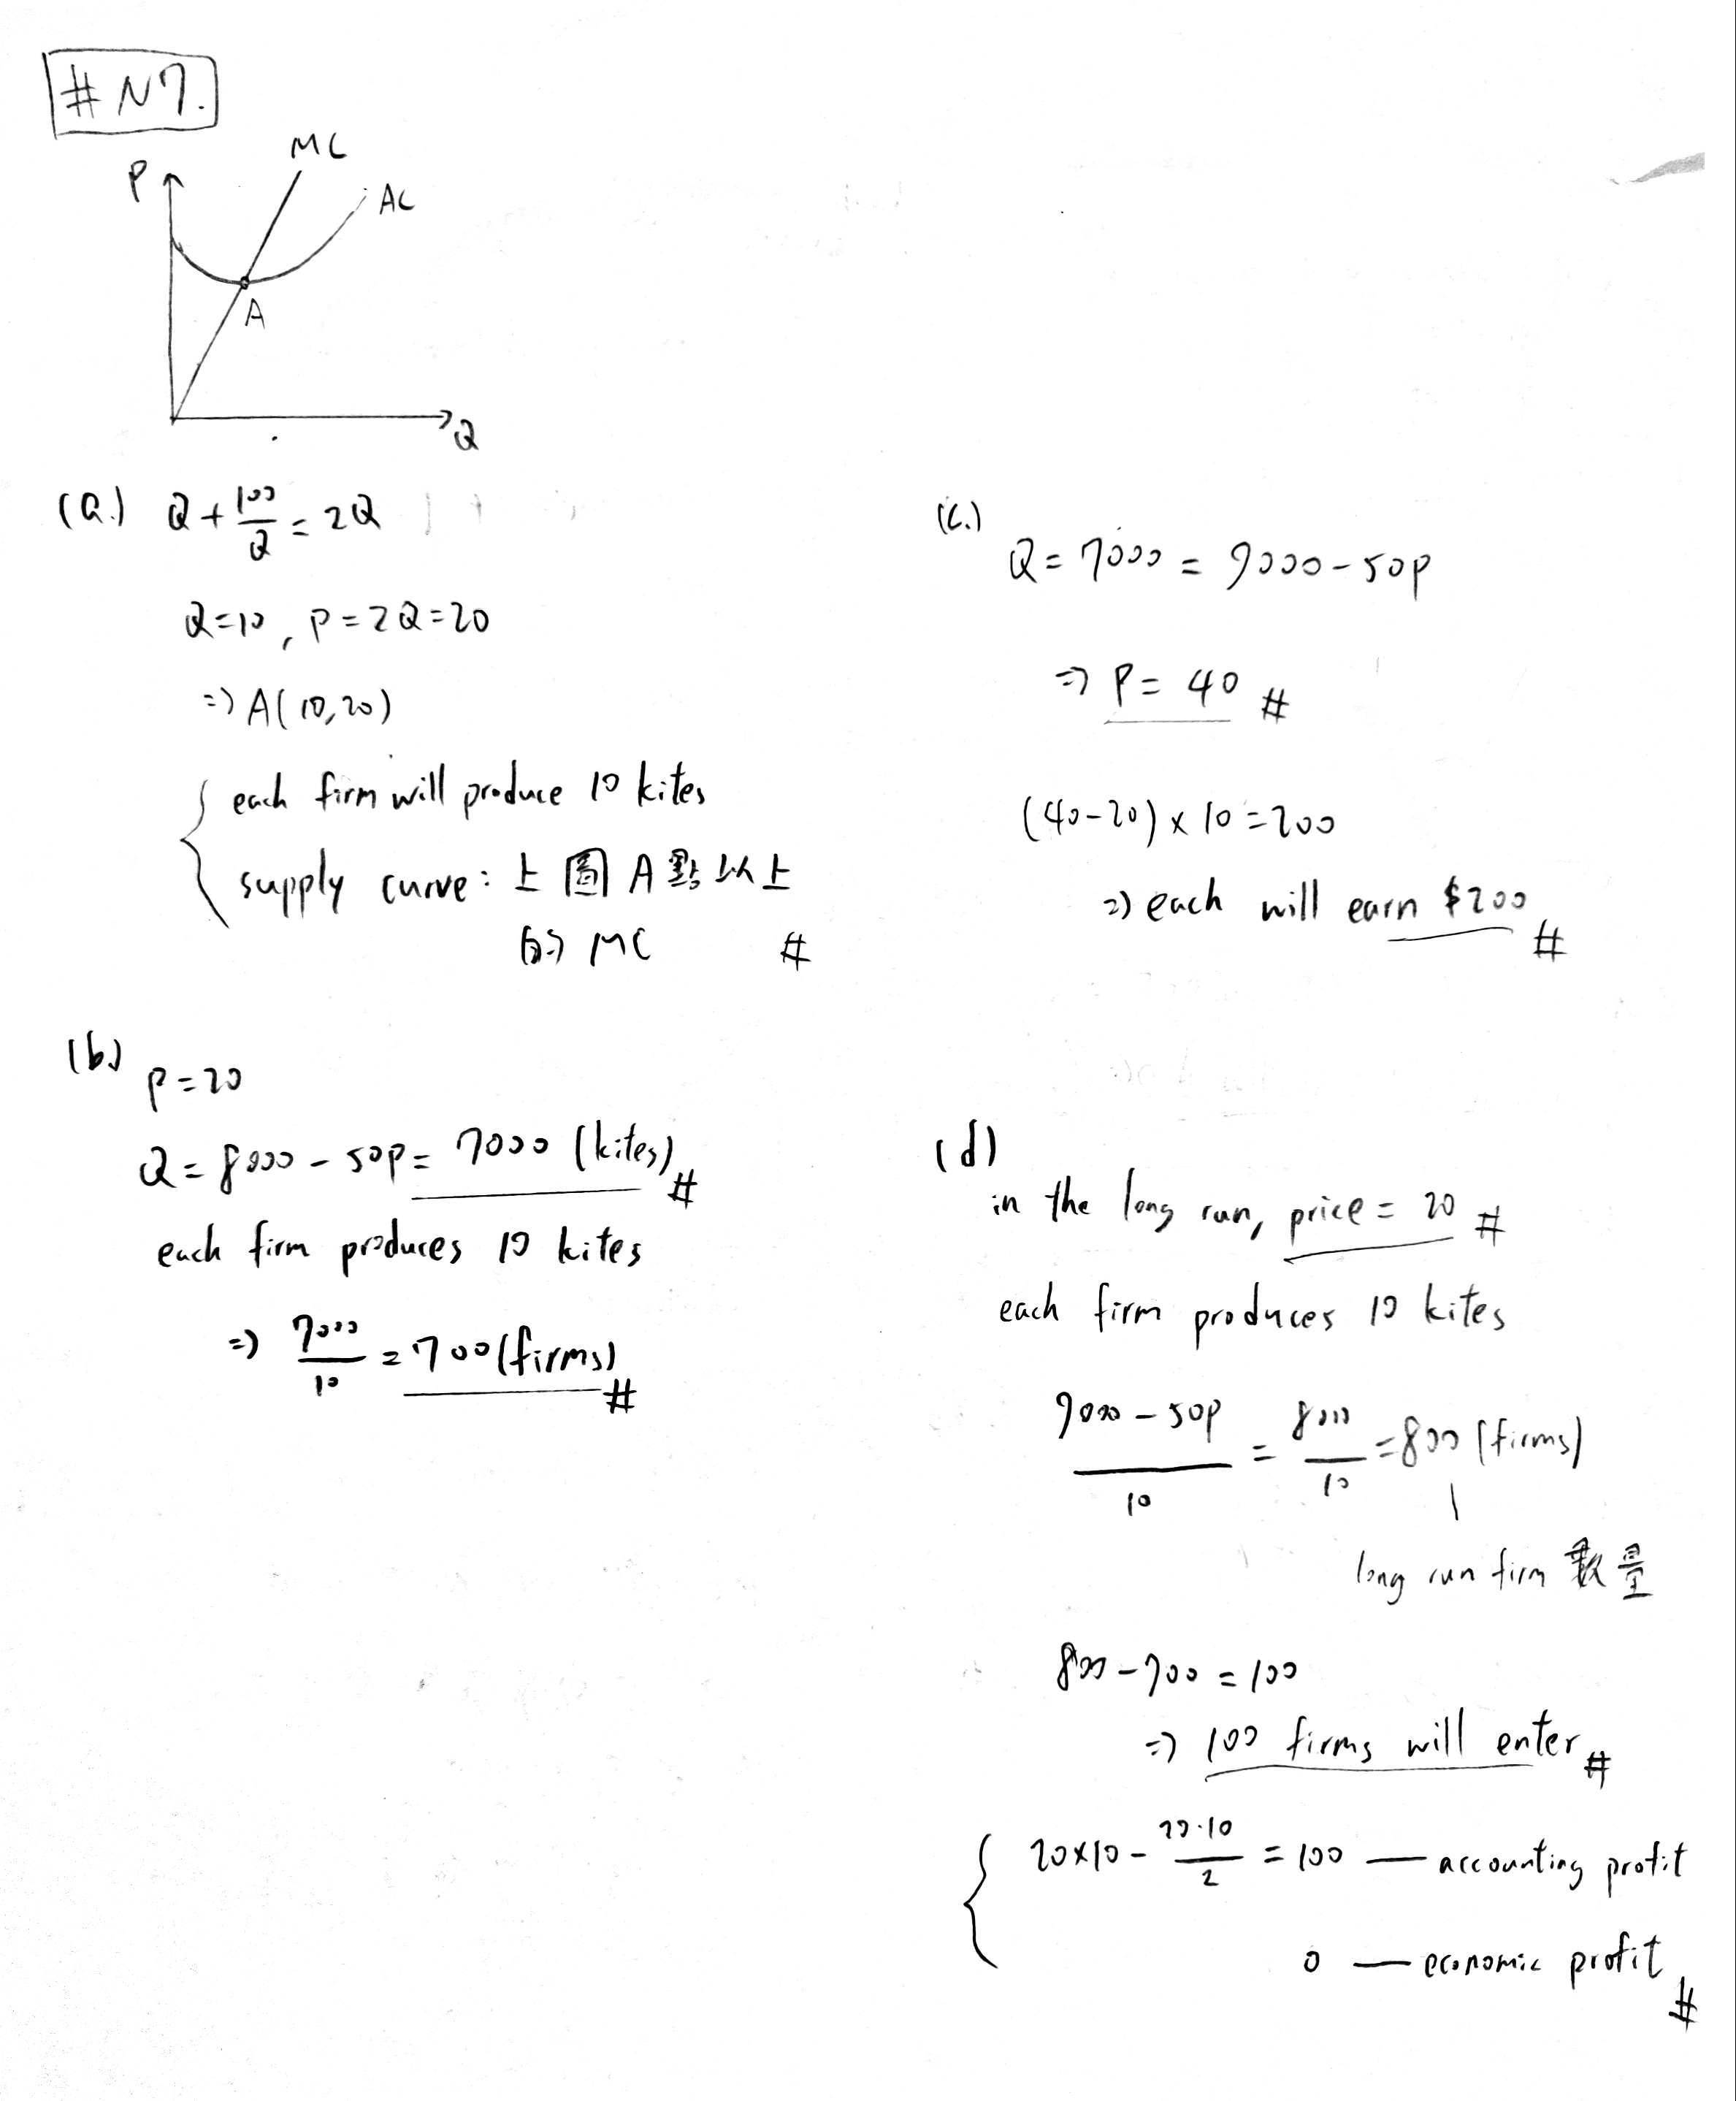 #N7.
MC
P
AC
A
Q
(a.) Q + 100/Q = 2Q
Q=10, P=2Q=20
=> A(10,20)
each firm will produce 10 kites
supply curve: 上圖A點以上
的 MC #
(b.) P=20
Q = 8000 - 50P = 7000 (kites) #
each firm produces 10 kites
=> 7000/10 = 700 (firms) #
(c.)
Q = 7000 = 9000 - 50P
=> P = 40 #
(40-20) x 10 = 200
=> each will earn $200 #
(d)
in the long run, price = 20 #
each firm produces 10 kites
9000 - 50P/10 = 8000/10 = 800 (firms)
long run firm 數量
800 - 700 = 100
=> 100 firms will enter #
20x10 - 20·10/2 = 100 — accounting profit
0 — economic profit #